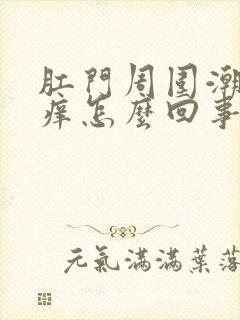 肛門周圍潮
痒怎麼回事
元氣滿滿葉落